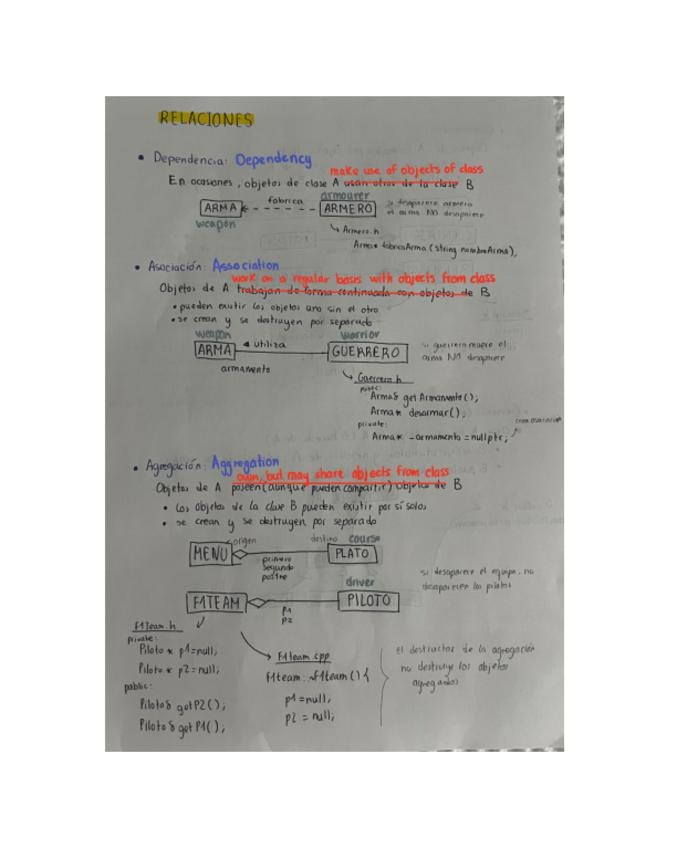 RELACIONES
• Dependencia: Dependency
make use of objects of class
En ocasiones, objetos de clase A usan otros de la clase B
armourer
ARMA fabrica ARMERO si desaparece armero
el arma NO desaparece
weapon
Armero.h
Arma* fabricaArma (string nombreArma);
• Asociación: Association
work on a regular basis with objects from class
Objetos de A trabajan de forma continuada con objetos de B
• pueden existir los objetos uno sin el otro
• se crean y se destruyen por separado
weapon warrior
ARMA utiliza GUERRERO si guerrero muere el
arma NO desaparece
armamento
Guerrero.h
public:
Arma& getArmamento();
Arma* desarmar();
private:
Arma* -armamento = nullptr;
• Agregación: Aggregation
own, but may share objects from class
Objetos de A poseen (aunque pueden compartir) objetos de B
• Los objetos de la clase B pueden existir por sí solos
• se crean y se destruyen por separado
origen destino course
MENU PLATO
primero
segundo
postre
si desaparece el equipo, no
desaparecen los pilotos
driver
F1TEAM PILOTO
P1
P2
F1Team.h
private:
Piloto * p1=null;
Piloto * p2=null;
public:
Piloto& getP2();
Piloto& getP1();
F1team.cpp
F1team::~F1team(){
p1=null;
p2 = null;
el destructor de la agregación
no destruye los objetos
agregados